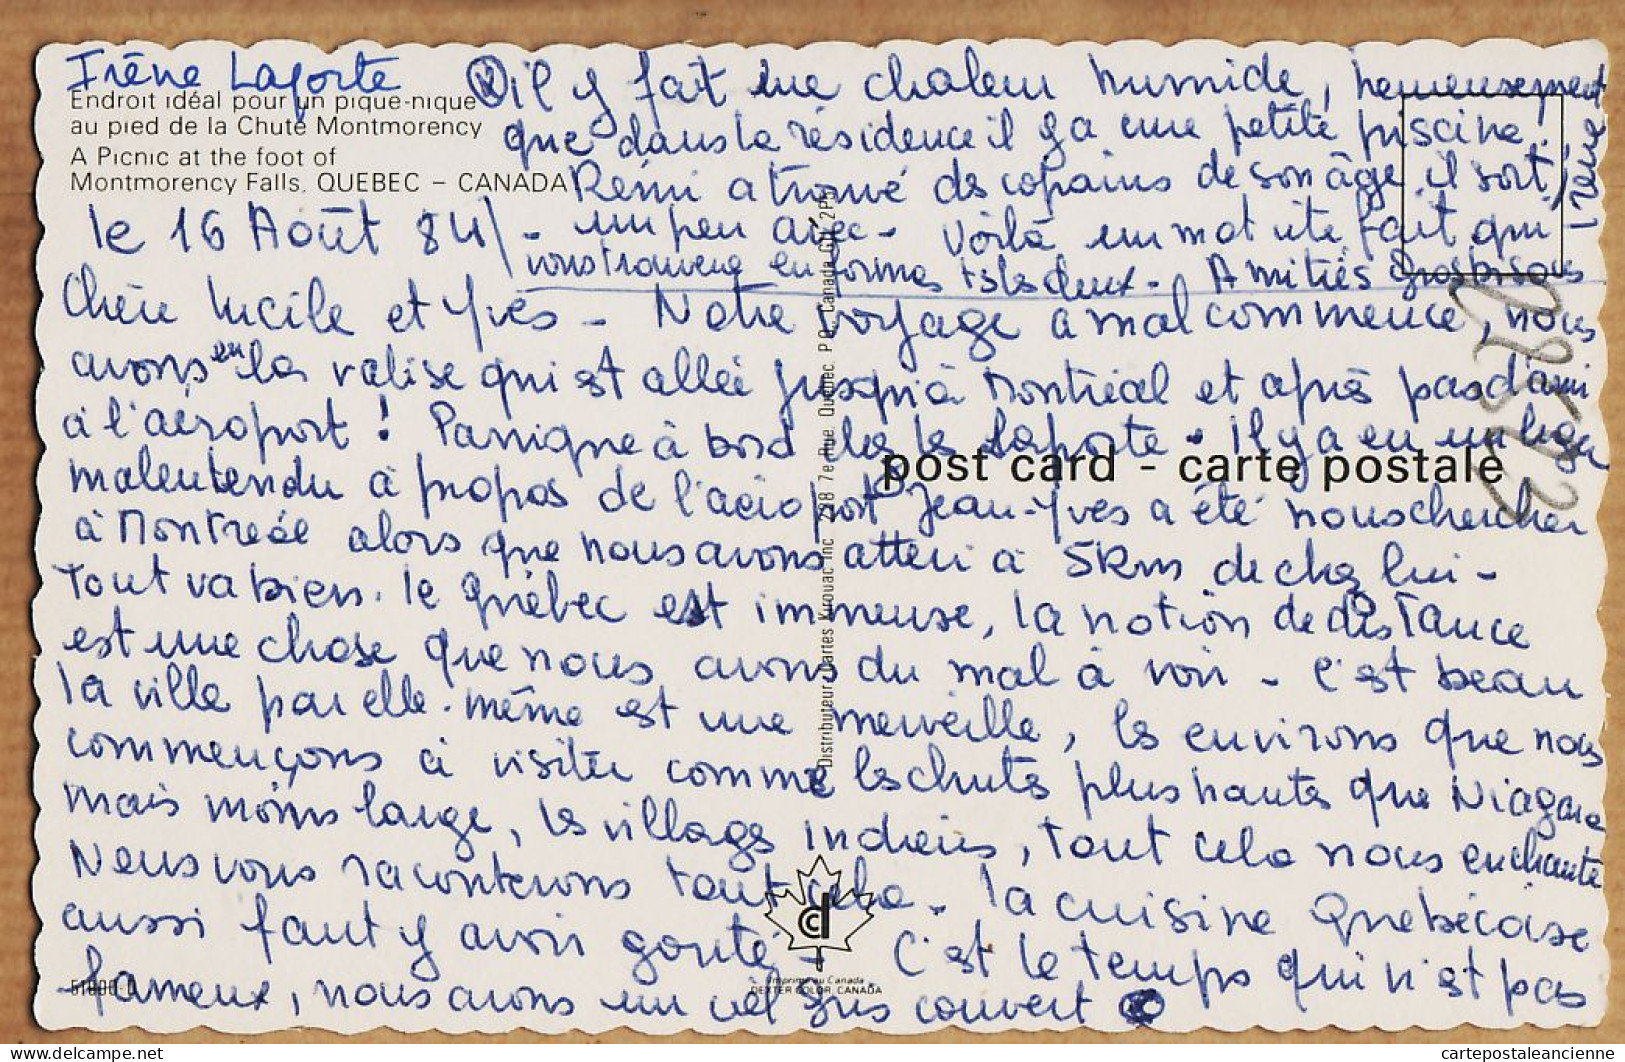 Irène Laporte
Endroit idéal pour un pique-nique
au pied de la Chute Montmorency
A Picnic at the foot of
Montmorency Falls, QUEBEC – CANADA
le 16 Août 84/
Chère Lucile et Yves – Notre voyage a mal commencé, nous
avons eu la valise qui est allée jusqu'à Montréal et après pas d'ami
à l'aéroport ! Panique à bord chez les Laporte. Il y a eu un léger
malentendu à propos de l'aéroport Jean-Yves a été nous chercher
à Montréal alors que nous avons atteri à 5 kms de chez lui –
Tout va bien. le Québec est immense, la notion de distance
est une chose que nous avons du mal à voir – C'est beau
la ville par elle-même est une merveille, les environs que nous
commençons à visiter comme les chutes plus hautes que Niagara
mais moins large, les villages indiens, tout cela nous enchante
Nous vous raconterons tout cela. la cuisine Québécoise
aussi faut y avoir gouté – C'est le temps qui n'est pas
fameux, nous avons un ciel gris couvert
il y fait une chaleur humide, heureusement
que dans la résidence il y a une petite piscine.
Rémi a trouvé des copains de son âge il sort
un peu avec – Voilà un mot vite fait qui
vous trouvera en forme ts les deux – Amitiés gros bisous
Irène
post card - carte postale
Distributeur: Cartes Kirouac Inc. 298 7e Rue, Québec, P.Q., Canada G1L 2P5
cd
Imprimé au Canada
DEXTER COLOR CANADA
51090-D
cartepostaleancienne.com